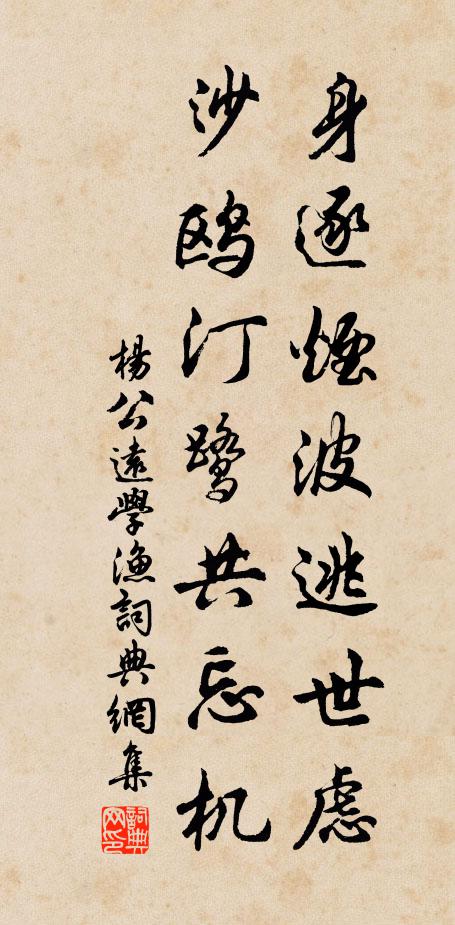 身逐烟波逃世虑
沙鸥汀鹭共忘机
楊公遠學漁詞典網集
詞典网印